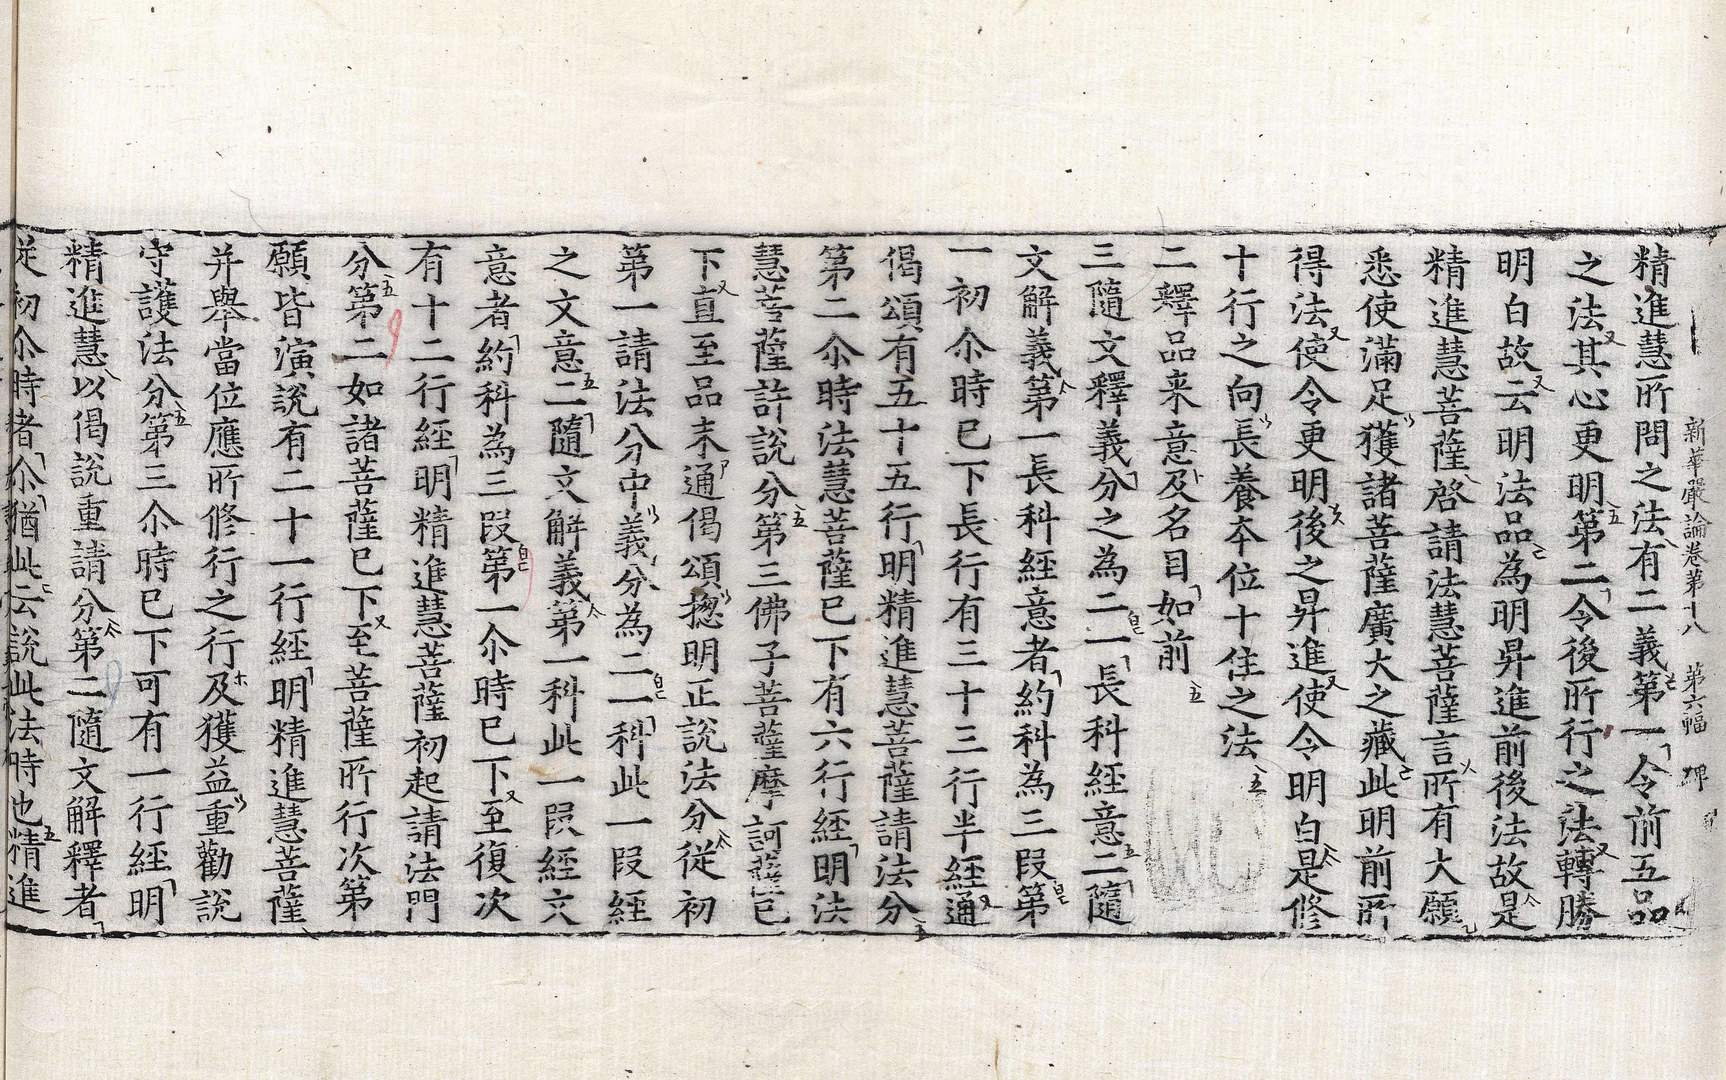 新華嚴論卷第十八　第六幅
精進慧所問之法有二義第一令前五品
之法其心更明第二令後所行之法轉勝
明白故云明法品為明昇進前後法故是
精進慧菩薩啓請法慧菩薩言所有大願
悉使滿足獲諸菩薩廣大之藏此明前所
得法使令更明後之昇進使令明白是修
十行之向長養夲位十住之法
二釋品来意及名目如前
三隨文釋義分之為二一長科經意二隨
文解義第一長科經意者約科為三段第
一初尒時已下長行有三十三行半經通
偈頌有五十五行明精進慧菩薩請法分
第二尒時法慧菩薩已下有六行經明法
慧菩薩許說分第三佛子菩薩摩訶薩已
下直至品末通偈頌揔明正說法分從初
第一請法分中義分為二一科此一段經
之文意二隨文解義第一科此一段經文
意者約科為三段第一尒時已下至復次
有十二行經明精進慧菩薩初起請法門
分第二如諸菩薩已下至菩薩所行次第
願皆演說有二十一行經明精進慧菩薩
并舉當位應所修行之行及獲益重勸說
守護法分第三尒時已下可有一行經明
精進慧以偈說重請分第二隨文解釋者
從初尒時者尒猶此云說此法時也精進